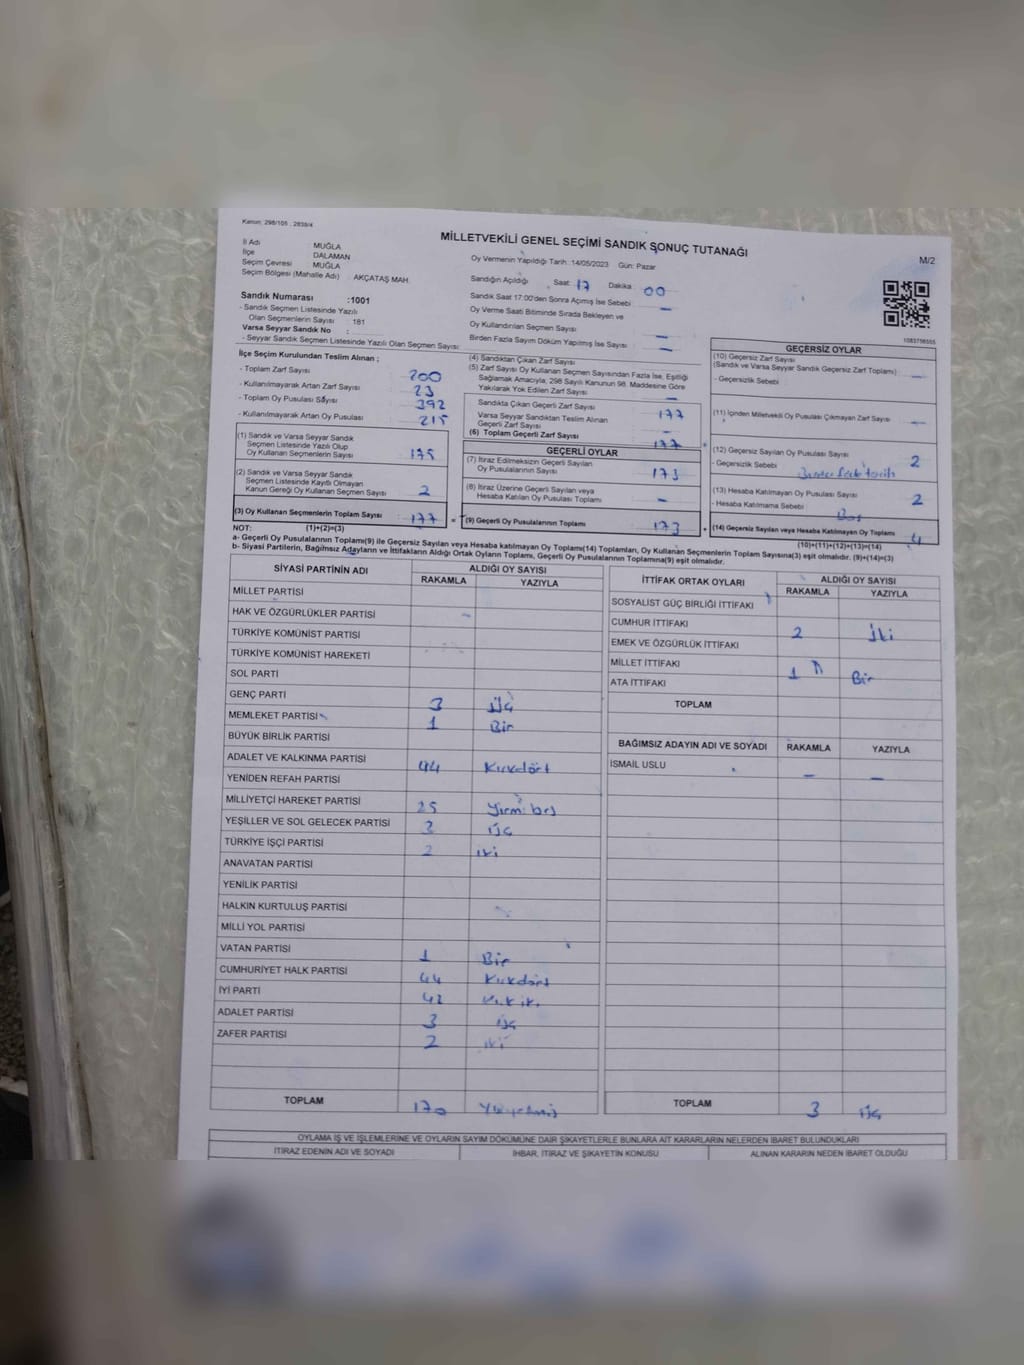 Kanun: 298/105 , 2839/4
MİLLETVEKİLİ GENEL SEÇİMİ SANDIK SONUÇ TUTANAĞI
M/2
İl Adı MUĞLA
İlçe DALAMAN
Seçim Çevresi MUĞLA
Seçim Bölgesi (Mahalle Adı) AKÇATAŞ MAH.
Oy Vermenin Yapıldığı Tarih :14/05/2023 Gün: Pazar
Sandığın Açıldığı Saat: 17 Dakika 00
Sandık Saat 17:00'den Sonra Açımış İse Sebebi —
Oy Verme Saati Bitiminde Sırada Bekleyen ve
Oy Kullandırılan Seçmen Sayısı —
Birden Fazla Sayım Döküm Yapılmış İse Sayısı —
Sandık Numarası :1001
- Sandık Seçmen Listesinde Yazılı
Olan Seçmenlerin Sayısı : 181
Varsa Seyyar Sandık No :
- Seyyar Sandık Seçmen Listesinde Yazılı Olan Seçmen Sayısı:
1083798555
İlçe Seçim Kurulundan Teslim Alınan ;
- Toplam Zarf Sayısı 200
- Kullanılmayarak Artan Zarf Sayısı 23
- Toplam Oy Pusulası Sayısı 392
- Kullanılmayarak Artan Oy Pusulası 215
(1) Sandık ve Varsa Seyyar Sandık
Seçmen Listesinde Yazılı Olup
Oy Kullanan Seçmenlerin Sayısı 175
(2) Sandık ve Varsa Seyyar Sandık
Seçmen Listesinde Kayıtlı Olmayan
Kanun Gereği Oy Kullanan Seçmen Sayısı 2
(3) Oy Kullanan Seçmenlerin Toplam Sayısı : 177
(1)+(2)=(3)
(4) Sandıktan Çıkan Zarf Sayısı
(5) Zarf Sayısı Oy Kullanan Seçmen Sayısından Fazla İse, Eşitliği
Sağlamak Amacıyla; 298 Sayılı Kanunun 98. Maddesine Göre
Yakılarak Yok Edilen Zarf Sayısı —
Sandıkta Çıkan Geçerli Zarf Sayısı 177
Varsa Seyyar Sandıktan Teslim Alınan
Geçerli Zarf Sayısı —
(6) Toplam Geçerli Zarf Sayısı 177
GEÇERLİ OYLAR
(7) İtiraz Edilmeksizin Geçerli Sayılan
Oy Pusulalarının Sayısı 173
(8) İtiraz Üzerine Geçerli Sayılan veya
Hesaba Katılan Oy Pusulası Toplamı —
= (9) Geçerli Oy Pusulalarının Toplamı 173
GEÇERSİZ OYLAR
(10) Geçersiz Zarf Sayısı
(Sandık ve Varsa Seyyar Sandık Geçersiz Zarf Toplamı) —
- Geçersizlik Sebebi
(11) İçinden Milletvekili Oy Pusulası Çıkmayan Zarf Sayısı —
(12) Geçersiz Sayılan Oy Pusulası Sayısı 2
- Geçersizlik Sebebi
(13) Hesaba Katılmayan Oy Pusulası Sayısı 2
- Hesaba Katılmama Sebebi Boş
+ (14) Geçersiz Sayılan veya Hesaba Katılmayan Oy Toplamı 4
(10)+(11)+(12)+(13)=(14)
NOT:
a- Geçerli Oy Pusulalarının Toplamı(9) ile Geçersiz Sayılan veya Hesaba katılmayan Oy Toplam(14) Toplamları, Oy Kullanan Seçmenlerin Toplam Sayısına(3) eşit olmalıdır. (9)+(14)=(3)
b- Siyasi Partilerin, Bağımsız Adayların ve İttifakların Aldığı Ortak Oyların Toplamı, Geçerli Oy Pusulalarının Toplamına(9) eşit olmalıdır.
SİYASİ PARTİNİN ADI ALDIĞI OY SAYISI
RAKAMLA YAZIYLA
MİLLET PARTİSİ
HAK VE ÖZGÜRLÜKLER PARTİSİ
TÜRKİYE KOMÜNİST PARTİSİ
TÜRKİYE KOMÜNİST HAREKETİ
SOL PARTİ
GENÇ PARTİ 3 üç
MEMLEKET PARTİSİ 1 Bir
BÜYÜK BİRLİK PARTİSİ
ADALET VE KALKINMA PARTİSİ 44 Kırkdört
YENİDEN REFAH PARTİSİ
MİLLİYETÇİ HAREKET PARTİSİ 25 Yirmi beş
YEŞİLLER VE SOL GELECEK PARTİSİ 3 üç
TÜRKİYE İŞÇİ PARTİSİ 2 iki
ANAVATAN PARTİSİ
YENİLİK PARTİSİ
HALKIN KURTULUŞ PARTİSİ
MİLLİ YOL PARTİSİ
VATAN PARTİSİ 1 Bir
CUMHURİYET HALK PARTİSİ 44 Kırkdört
İYİ PARTİ 42
ADALET PARTİSİ 3 üç
ZAFER PARTİSİ 2 iki
TOPLAM 170
İTTİFAK ORTAK OYLARI ALDIĞI OY SAYISI
RAKAMLA YAZIYLA
SOSYALİST GÜÇ BİRLİĞİ İTTİFAKI
CUMHUR İTTİFAKI 2 İki
EMEK VE ÖZGÜRLÜK İTTİFAKI
MİLLET İTTİFAKI 1 Bir
ATA İTTİFAKI
TOPLAM
BAĞIMSIZ ADAYIN ADI VE SOYADI RAKAMLA YAZIYLA
İSMAİL USLU — —
TOPLAM 3 üç
OYLAMA İŞ VE İŞLEMLERİNE VE OYLARIN SAYIM DÖKÜMÜNE DAİR ŞİKAYETLERLE BUNLARA AİT KARARLARIN NELERDEN İBARET BULUNDUKLARI
İTİRAZ EDENİN ADI VE SOYADI İHBAR, İTİRAZ VE ŞİKAYETİN KONUSU ALINAN KARARIN NEDEN İBARET OLDUĞU